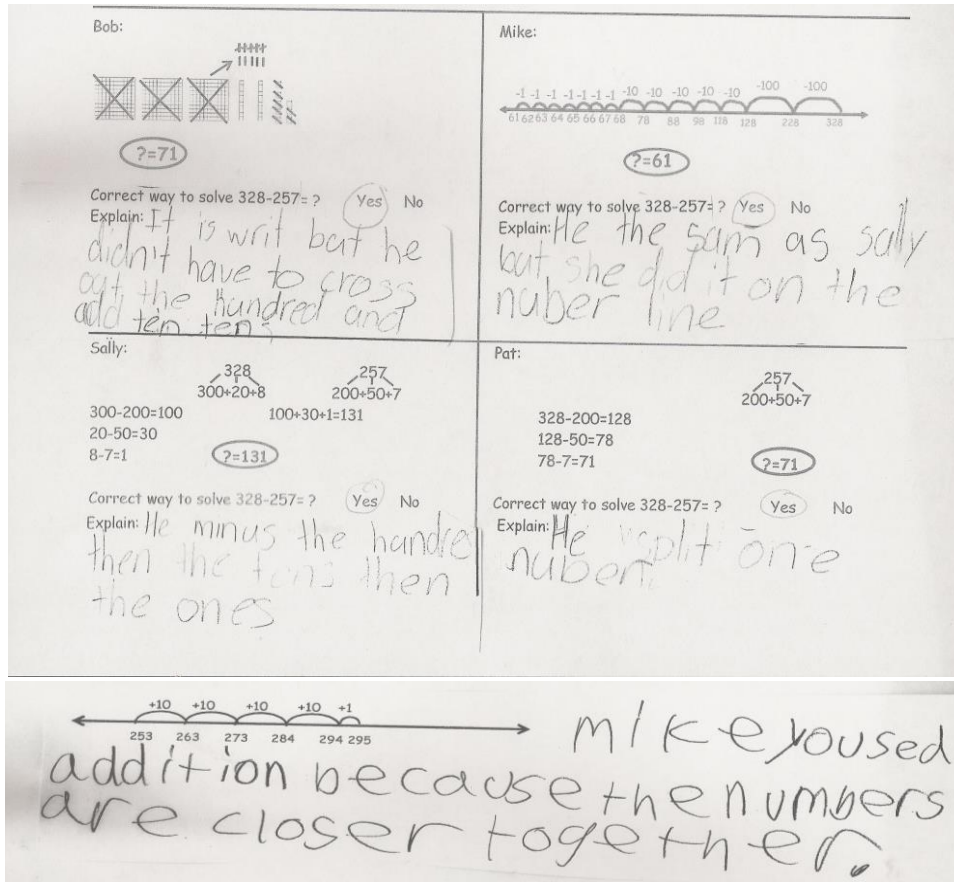 Bob:
?=71
Correct way to solve 328-257= ? Yes No
Explain: It is writ but he
didn't have to cross
out the hundred and
add ten tens
Mike:
-1 -1 -1 -1 -1 -1 -1 -10 -10 -10 -10 -10 -100 -100
61 62 63 64 65 66 67 68 78 88 98 118 128 228 328
?=61
Correct way to solve 328-257= ? Yes No
Explain: He the sam as sally
but she did it on the
nuber line
Sally:
328 257
300+20+8 200+50+7
300-200=100 100+30+1=131
20-50=30
8-7=1 ?=131
Correct way to solve 328-257= ? Yes No
Explain: He minus the handre
then the tens then
the ones
Pat:
257
200+50+7
328-200=128
128-50=78
78-7=71 ?=71
Correct way to solve 328-257= ? Yes No
Explain: He split one
nuber
+10 +10 +10 +10 +1
253 263 273 284 294 295
mike yoused
addition because the numbers
are closer together.